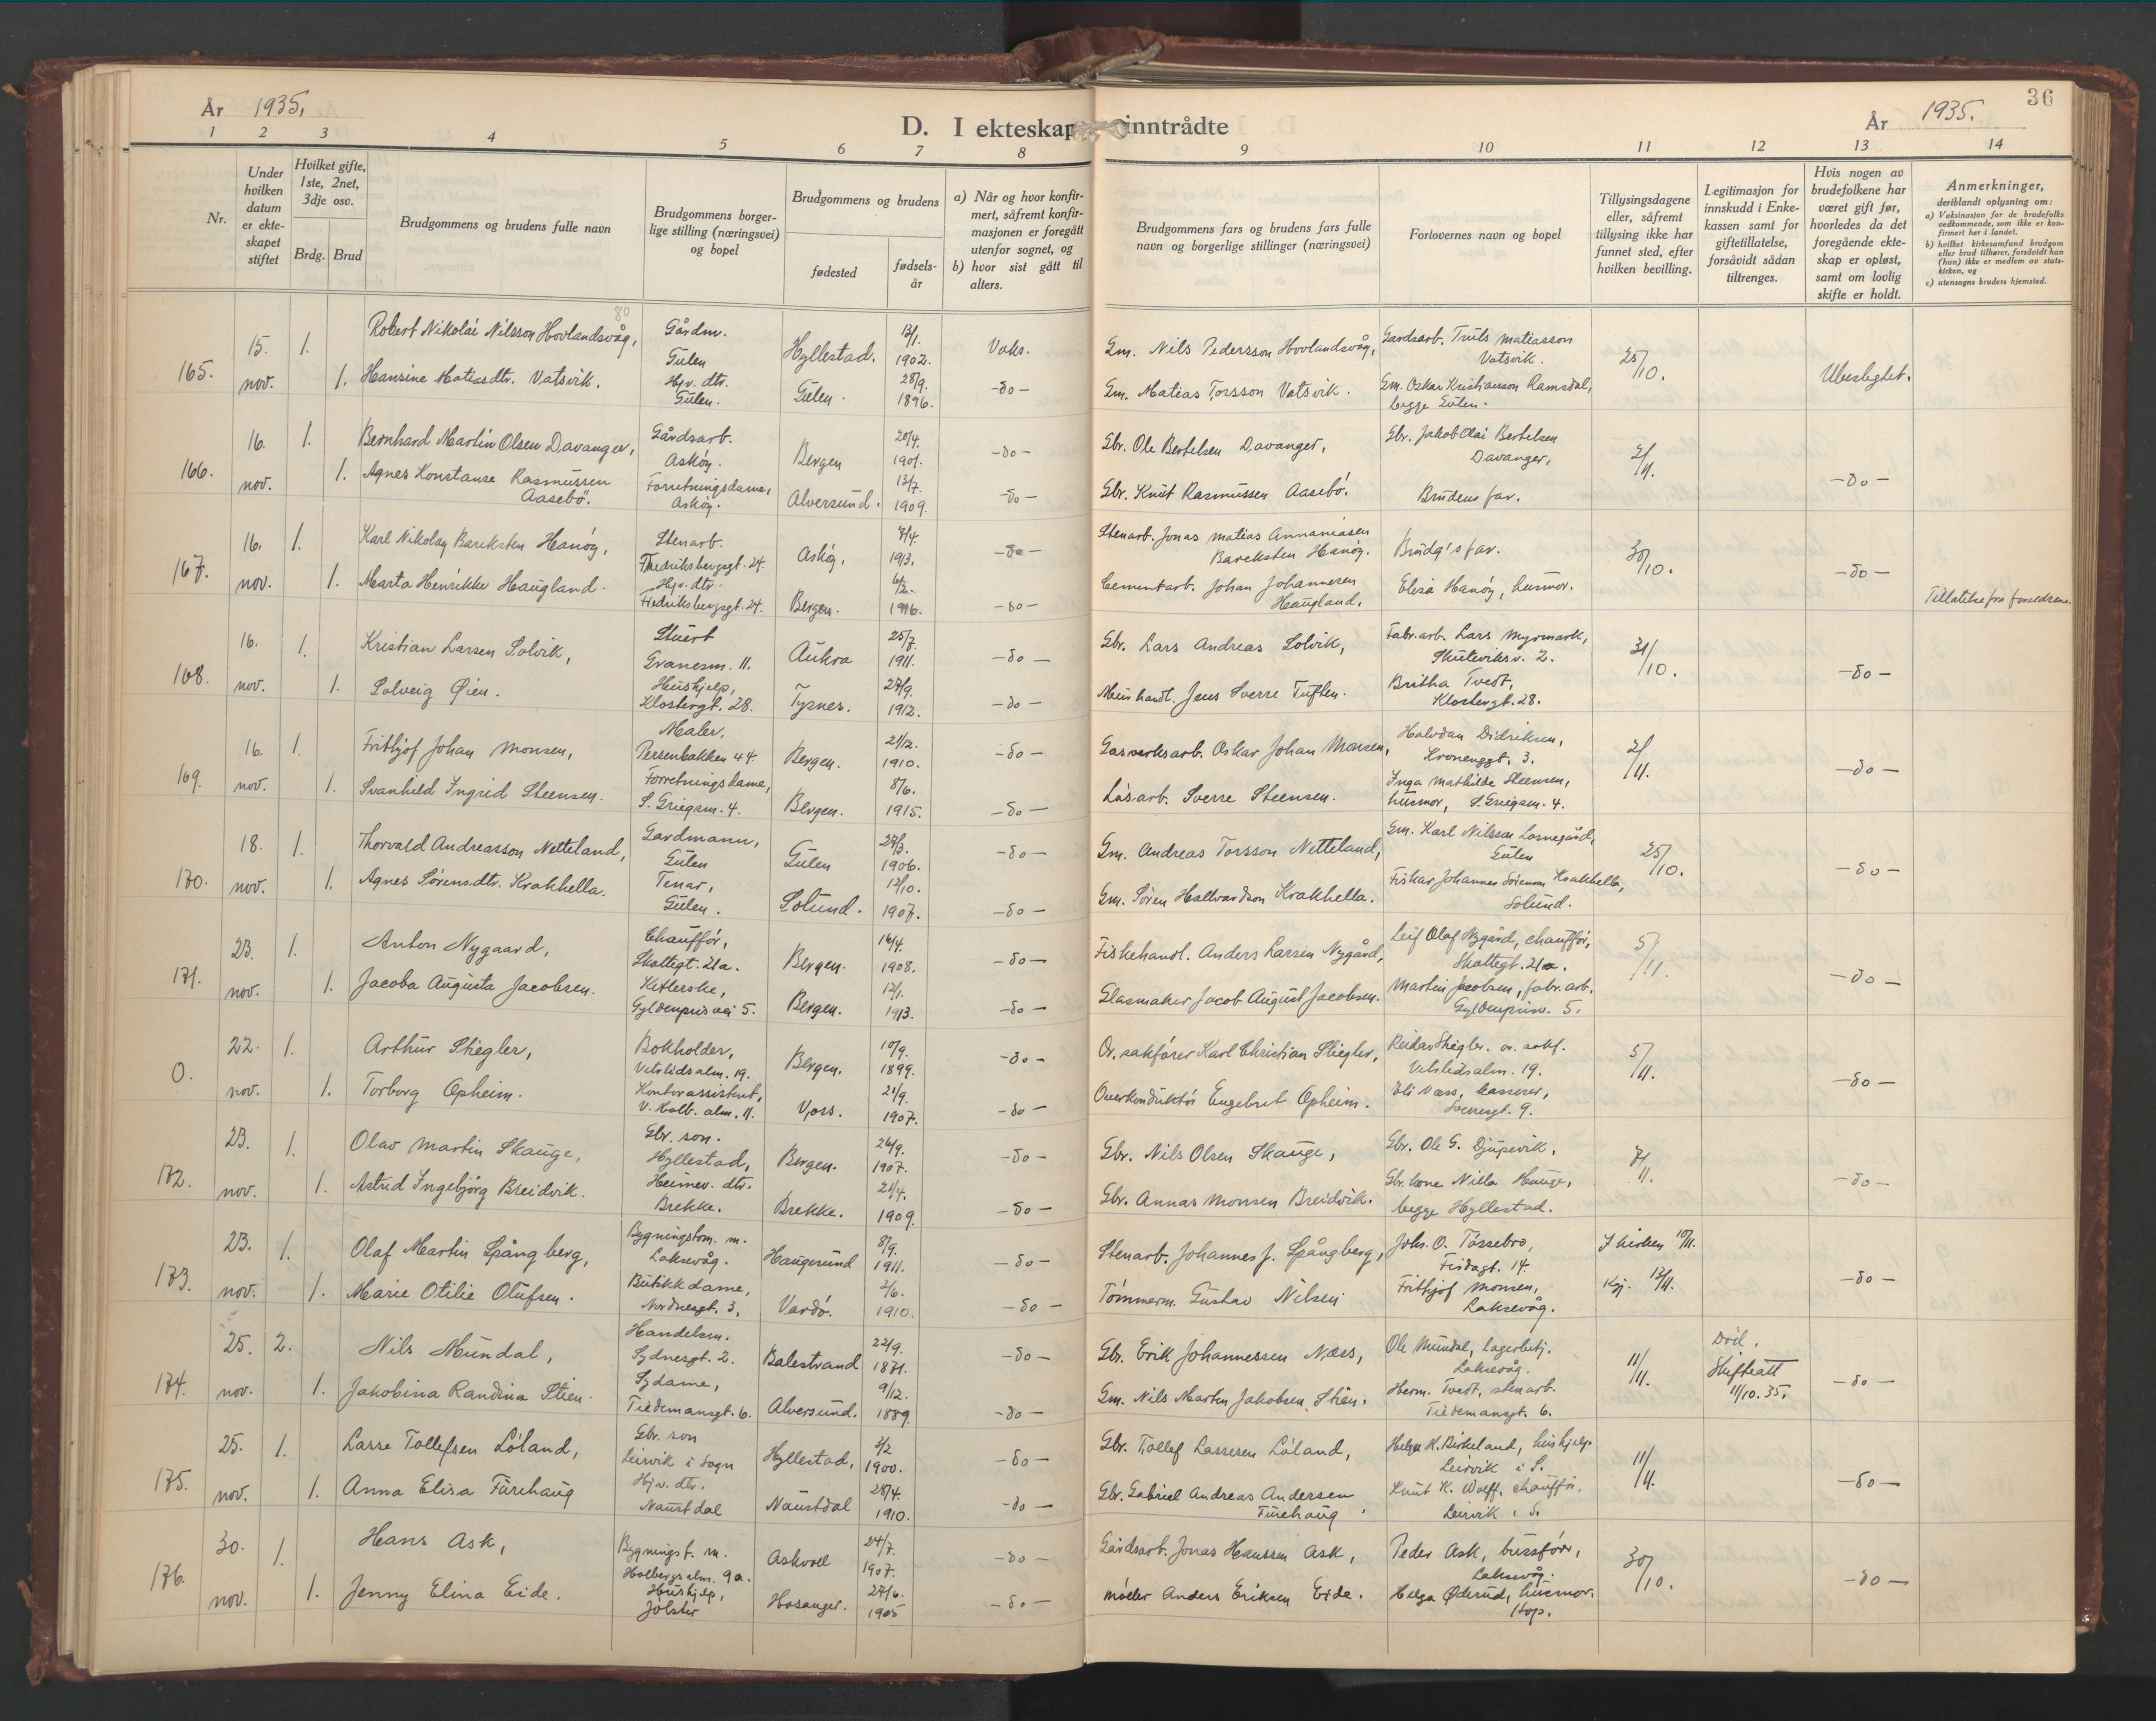 År 1935.
D. I ekteskap inntrådte
År 1935.
36
1 2 3 4 5 6 7 8 9 10 11 12 13 14
Nr.
Under hvilken datum er ekteskapet stiftet
Hvilket gifte, 1ste, 2net, 3dje osv.
Brdg. Brud
Brudgommens og brudens fulle navn
Brudgommens borgerlige stilling (næringsvei) og bopel
Brudgommens og brudens
fødested
fødselsår
a) Når og hvor konfirmert, såfremt konfirmasjonen er foregått utenfor sognet, og
b) hvor sist gått til alters.
Brudgommens fars og brudens fars fulle navn og borgerlige stillinger (næringsvei)
Forlovernes navn og bopel
Tillysingsdagene eller, såfremt tillysing ikke har funnet sted, efter hvilken bevilling.
Legitimasjon for innskudd i Enkekassen samt for giftetillatelse, forsåvidt sådan tiltrenges.
Hvis nogen av brudefolkene har været gift før, hvorledes da det foregående ekteskap er opløst, samt om lovlig skifte er holdt.
Anmerkninger, deriblandt oplysning om:
a) Vaksinasjon for de brudefolks vedkommende, som ikke er konfirmert her i landet.
b) hvilket kirkesamfund brudgom eller brud tilhører, forsåvidt han (hun) ikke er medlem av statskirken, og
c) utensogns bruders hjemsted.
80
165. 15. nov. 1. Robert Nikolai Nilsson Hovlandsvåg, Gårdm. Gulen Hyllestad. 13/1. 1902. Vaks. Gm. Nils Pedersson Hovlandsvåg, Gardsarb. Truls Matiasson Vatsvik. 25/10. Ubeslegtet.
1. Hansine Matiasdtr. Vatsvik. Hjv. dtr. Gulen. Gulen. 28/9. 1896. -do- Gm. Matias Torsson Vatsvik. Gm. Oskar Kristianson Ramsdal, begge Gulen.
166. 16. nov. 1. Bernhard Martin Olsen Davanger, Gårdsarb. Askøy. Bergen 20/4. 1901. -do- Gbr. Ole Bertelsen Davanger, Gbr. Jakob Olai Bertelsen Davanger, 2/11. -do-
1. Agnes Konstanse Rasmussen Aasebö. Forretningsdame, Askøy. Alversund. 13/7. 1909. -do- Gbr. Knut Rasmussen Aasebö. Brudens far.
167. 16. nov. 1. Karl Nikolay Bareksten Hanöy, Stenarb. Fredriksbergsgt. 24. Askøy. 7/4. 1913. -do- Stenarb. Jonas Matias Annaniasen Bareksten Hanöy. Brudg's far. 30/10. -do-
1. Marta Henrikke Haugland. Hjv. dtr. Fredriksbergsgt. 24. Bergen. 6/2. 1916. -do- Cementarb. Johan Johannesen Haugland. Elisa Hanöy, husmor. Tillatelse fra foreldrene.
168. 16. nov. 1. Kristian Larsen Solvik, Stuert Granesm. 11. Aukra 25/7. 1911. -do- Gbr. Lars Andreas Solvik, Fabr.arb. Lars Myrmark, Skuteviksv. 2. 31/10. -do-
1. Solveig Øien. Hushjelp, Klostergt. 28. Tysnes. 27/9. 1912. -do- Jens Sverre Tuften. Britha Tvedt, Klostergt. 28.
169. 16. nov. 1. Frithjof Johan Monsen, Maler, Persenbakken 44. Bergen. 21/12. 1910. -do- Gasverksarb. Oskar Johan Monsen, Halvdan Didriksen, 3. 2/11. -do-
1. Svanhild Ingrid Steensen. Forretningsdame, S. Griegsm. 4. Bergen. 8/6. 1915. -do- Løsarb. Sverre Steensen. Inga Mathilde Steensen, husmor, S. Griegsm. 4.
170. 18. nov. 1. Thorvald Andreasson Netteland, Gardmann, Gulen Gulen 27/3. 1906. -do- Gm. Andreas Torsson Netteland, Gm. Karl Nilsson Losnegård, Gulen 25/10. -do-
1. Agnes Sørensdtr. Krakhella. Tenar, Gulen. Solund. 12/10. 1907. -do- Gm. Sören Hallvardson Krakhella. Fiskar Johannes Sörenson Krakhella, Solund.
171. 23. nov. 1. Anton Nygaard, Chauffór, Skottegt. 21a. Bergen. 16/4. 1908. -do- Fiskehandl. Anders Larsen Nygård, Leif Olaf Nygård, chauffór, Skottegt. 21a. 5/11. -do-
1. Jacoba Augusta Jacobsen. Gyldenprisvei 5. Bergen. 12/1. 1913. -do- Glasmaker Jacob August Jacobsen. Martin Jacobsen, fabr.arb. Gyldenprisv. 5.
0. 22. nov. 1. Arthur Stiegler, Bokholder, Vetrlidsalm. 19. Bergen. 10/9. 1899. -do- Ov. sakfører Karl Christian Stiegler, Reidar Stiegler. ov. sakf. Vetrlidsalm. 19. 5/11. -do-
1. Torborg Opheim. Kontorassistent, V. Holb. alm. 11. Voss. 21/9. 1907. -do- Overkonduktör Engebret Opheim. Eli Næss, kasserer, Sverresgt. 9.
172. 23. nov. 1. Olav Martin Skauge, Gbr. son. Hyllestad, Bergen. 26/9. 1907. -do- Gbr. Nils Olsen Skauge, Gbr. Ole G. Djupevik, 7/11. -do-
1. Astrid Ingebjörg Breidvik. Heimev. dtr. Brekke. Brekke. 21/4. 1909. -do- Gbr. Annas Monsen Breidvik. Gbr.kone Nilla Hauge, begge Hyllestad.
173. 23. nov. 1. Olaf Martin Spångberg, Bygningstom. m. Laksevåg. Haugesund 8/9. 1911. -do- Stenarb. Johannes J. Spångberg, Johs. O. Tössebro, Fisdagt. 14. I kirken 10/11. -do-
1. Marie Otilie Olufsen. Butikkdame, Nordnesgt. 3. Vardö. 2/6. 1910. -do- Tömmerm. Gustav Nilsen Frithjof Monsen, Laksevåg. Kgj. 12/11.
174. 25. nov. 2. Nils Mundal, Handelsm. Sydnesgt. 2. Balestrand 22/9. 1871. -do- Gbr. Erik Johannessen Næss, Ole Mundal, lagerbetj. Laksevåg. 11/11. Död. Skifteatt 11/10. 35. -do-
1. Jakobina Randina Stien. Sydame, Tiedemansgt. 6. Alversund. 9/12. 1889. -do- Gm. Nils Martin Jakobsen Stien. Herm. Tvedt, stenarb. Tiedemansgt. 6.
175. 25. nov. 1. Lasse Tollefsen Löland, Gbr. son Leirvik i Sogn Hyllestad, 3/2 1900. -do- Gbr. Tollef Lassesen Löland, Helga K. Birkeland, hushjelp Leirvik i S. 11/11. -do-
1. Anna Elisa Furehaug Hjv. dtr. Naustdal Naustdal 28/4. 1910. -do- Gbr. Gabriel Andreas Andersen Furehaug Knut K. Wolff, chauffór, Leirvik i S.
176. 30. nov. 1. Hans Ask, Bygningst. m. Holbergsalm. 9a. Askvoll 24/7. 1907. -do- Gårdsarb. Jonas Hanssen Ask, Peder Ask, bussfører, Laksevåg. 30/10. -do-
1. Jenny Elina Eide. Hushjelp, Jölster Hosanger. 27/6. 1905 -do- Möller Anders Eriksen Eide. Helga Øderud, husmor. Hop.